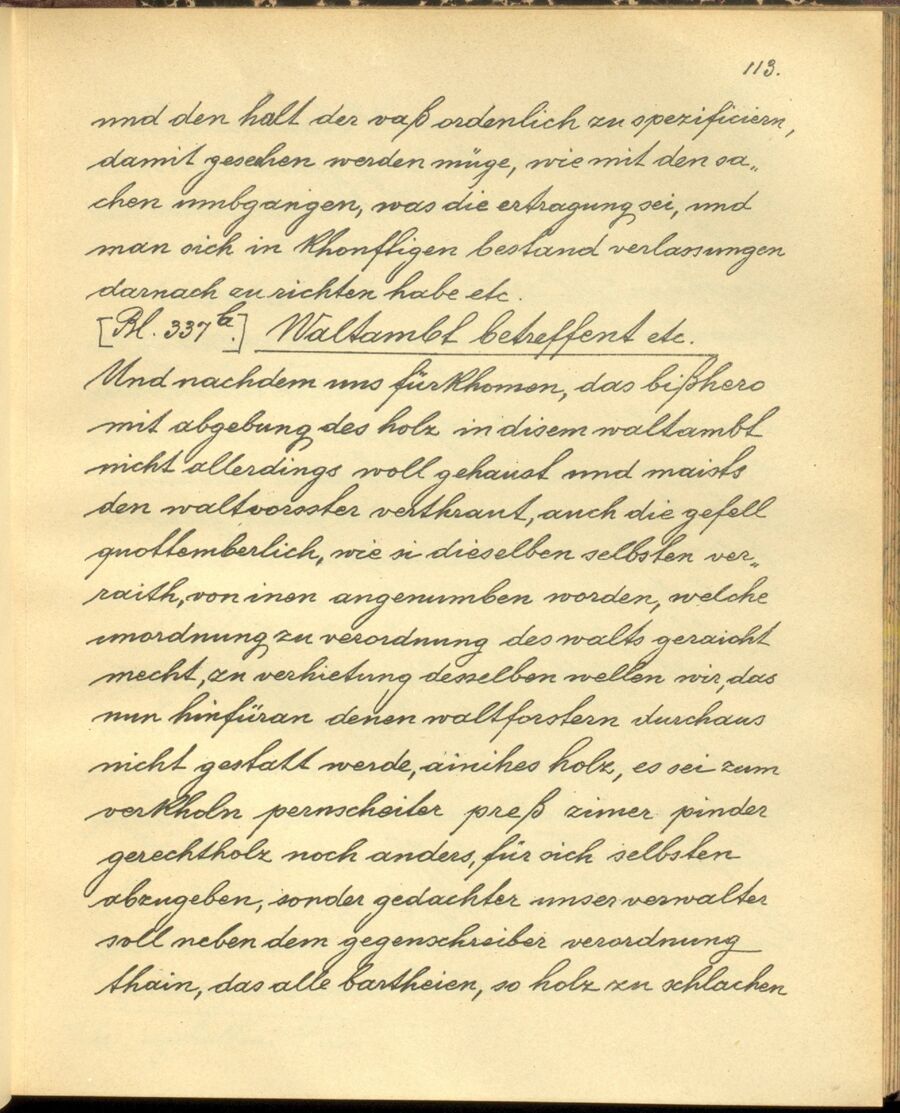 113.
und den halt der vaß ordenlich zu spezificiern,
damit gesehen werden müge, wie mit den sa„
chen umbgangen, was die ertragung sei, und
man sich in khonfftigen bestand verlassungen
darnach zu richten habe etc.
[Bl. 337a.] Waltambt betreffent etc.
Und nachdem uns fürkhomen, das bißhero
mit abgebung des holz in disem waltambt
nicht allerdings woll gehaust und maists
den waltvorsster verthraut, auch die gefell
quottemberlich, wie si dieselben selbsten ver„
raith, von inen angenumben worden, welche
unordnung zu verordnung des walts geraicht
mecht, zu verhietung desselben wellen wir, das
nun hinfüran denen waltforstern durchaus
nicht gestatt werde, ainihes holz, es sei zum
verkholn pernscheiter preß zimer pinder
gerechtholz noch anders, für sich selbsten
abzugeben, sonder gedachter unser verwalter
soll neben dem gegenschreiber verordnung
thain, das alle bartheien, so holz zu schlachen